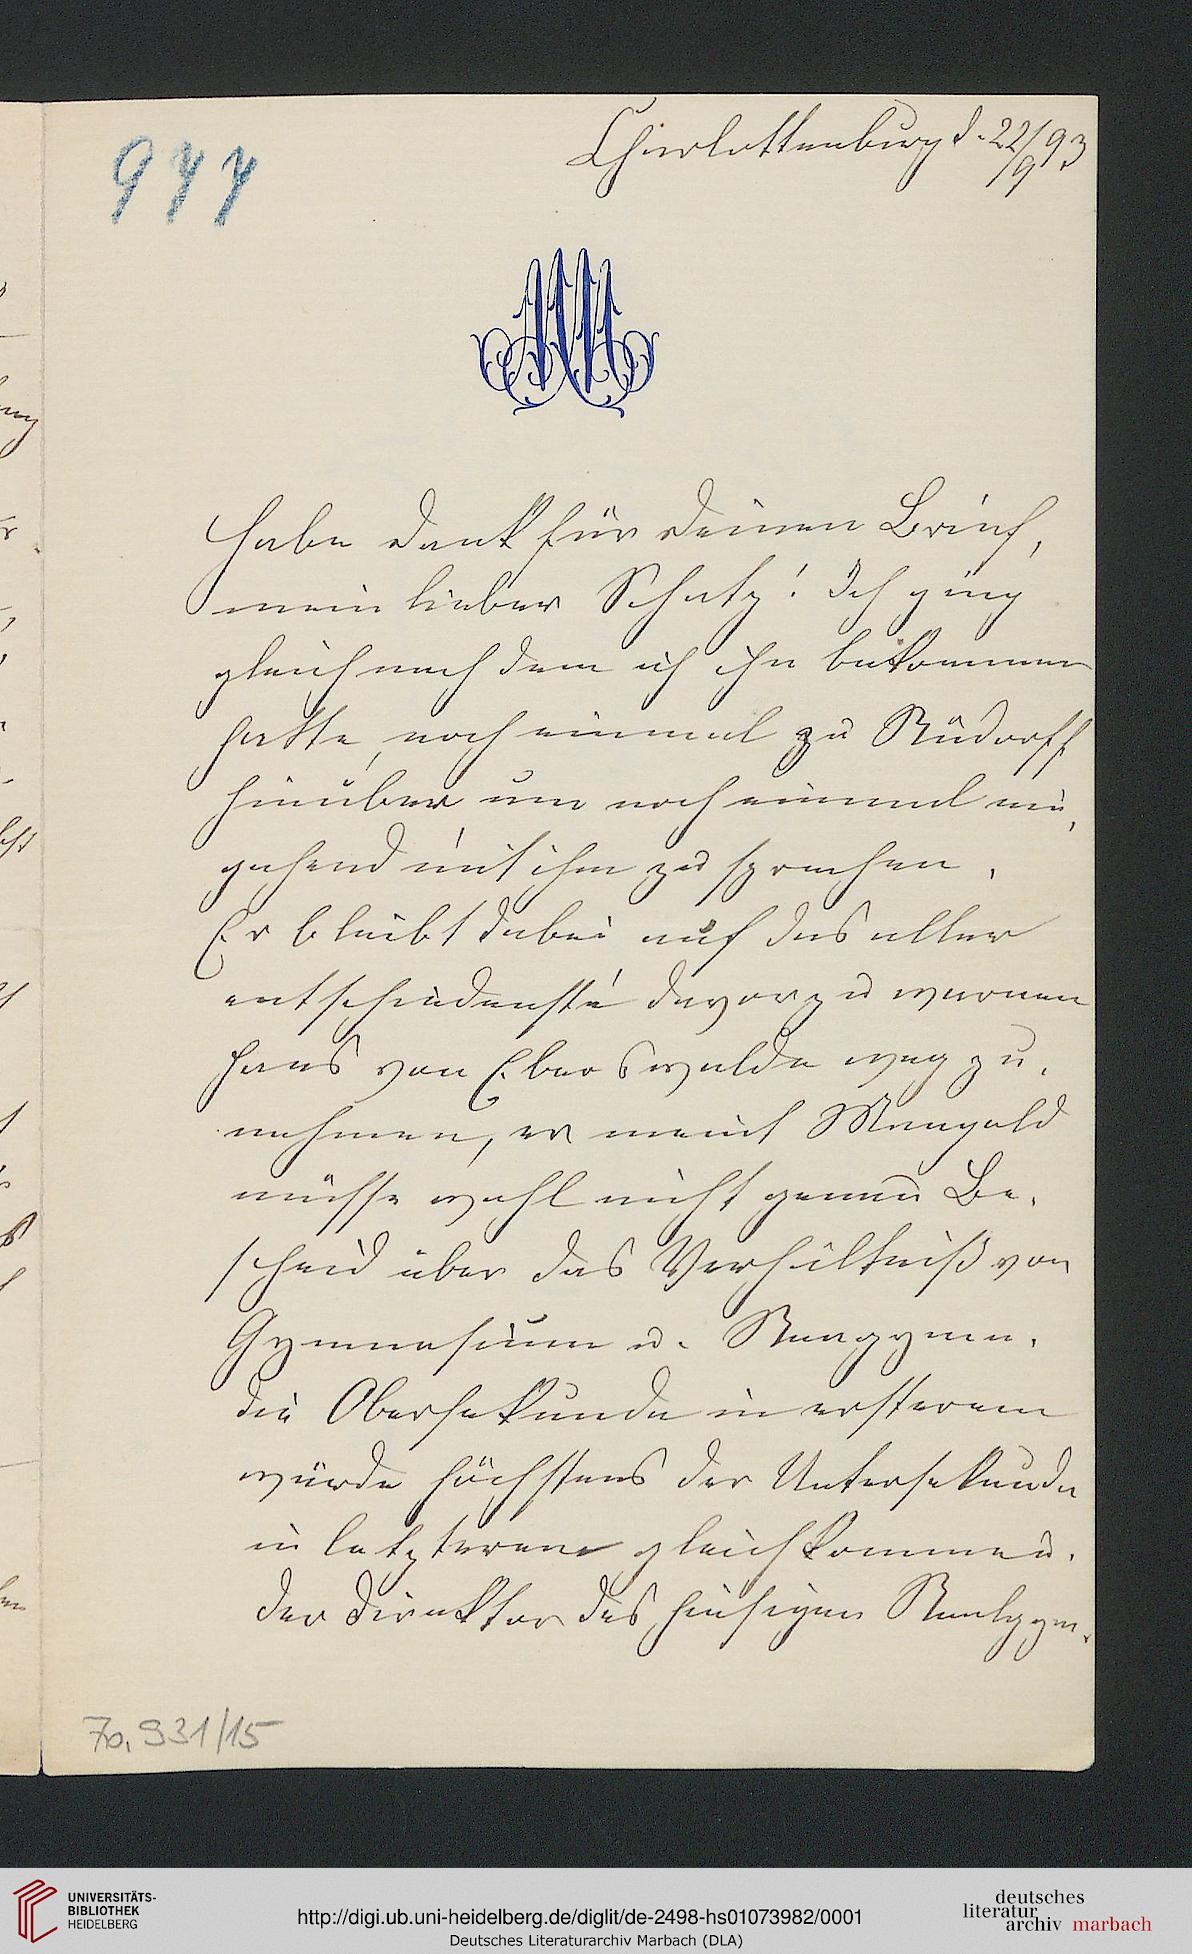 977
Charlottenburg d. 22/9 93.
Habe Dank für Deinen Brief,
mein lieber Schatz! Ich ging
gleich nach dem ich ihn bekommen
hatte, noch einmal zu Rüdorff
hinüber um noch einmal ein,
gehend mit ihm zu sprechen.
Er bleibt dabei auf das aller
entschiedenste davor zu warnen
Hans von Eberswalde weg zu,
nehmen, er meint Mangold
müsse wohl nicht genau Be,
scheid über das Verhältniß von
Gymnasium u. Reagymn.
die Obersekunda in ersterem
würde höchstens der Untersekunda
in letzterem gleichkommen.
Der Direktor des hiesigen Realgym.
70.931/15
UNIVERSITÄTS-
BIBLIOTHEK
HEIDELBERG
http://digi.ub.uni-heidelberg.de/diglit/de-2498-hs01073982/0001
Deutsches Literaturarchiv Marbach (DLA)
deutsches
literatur
archiv marbach